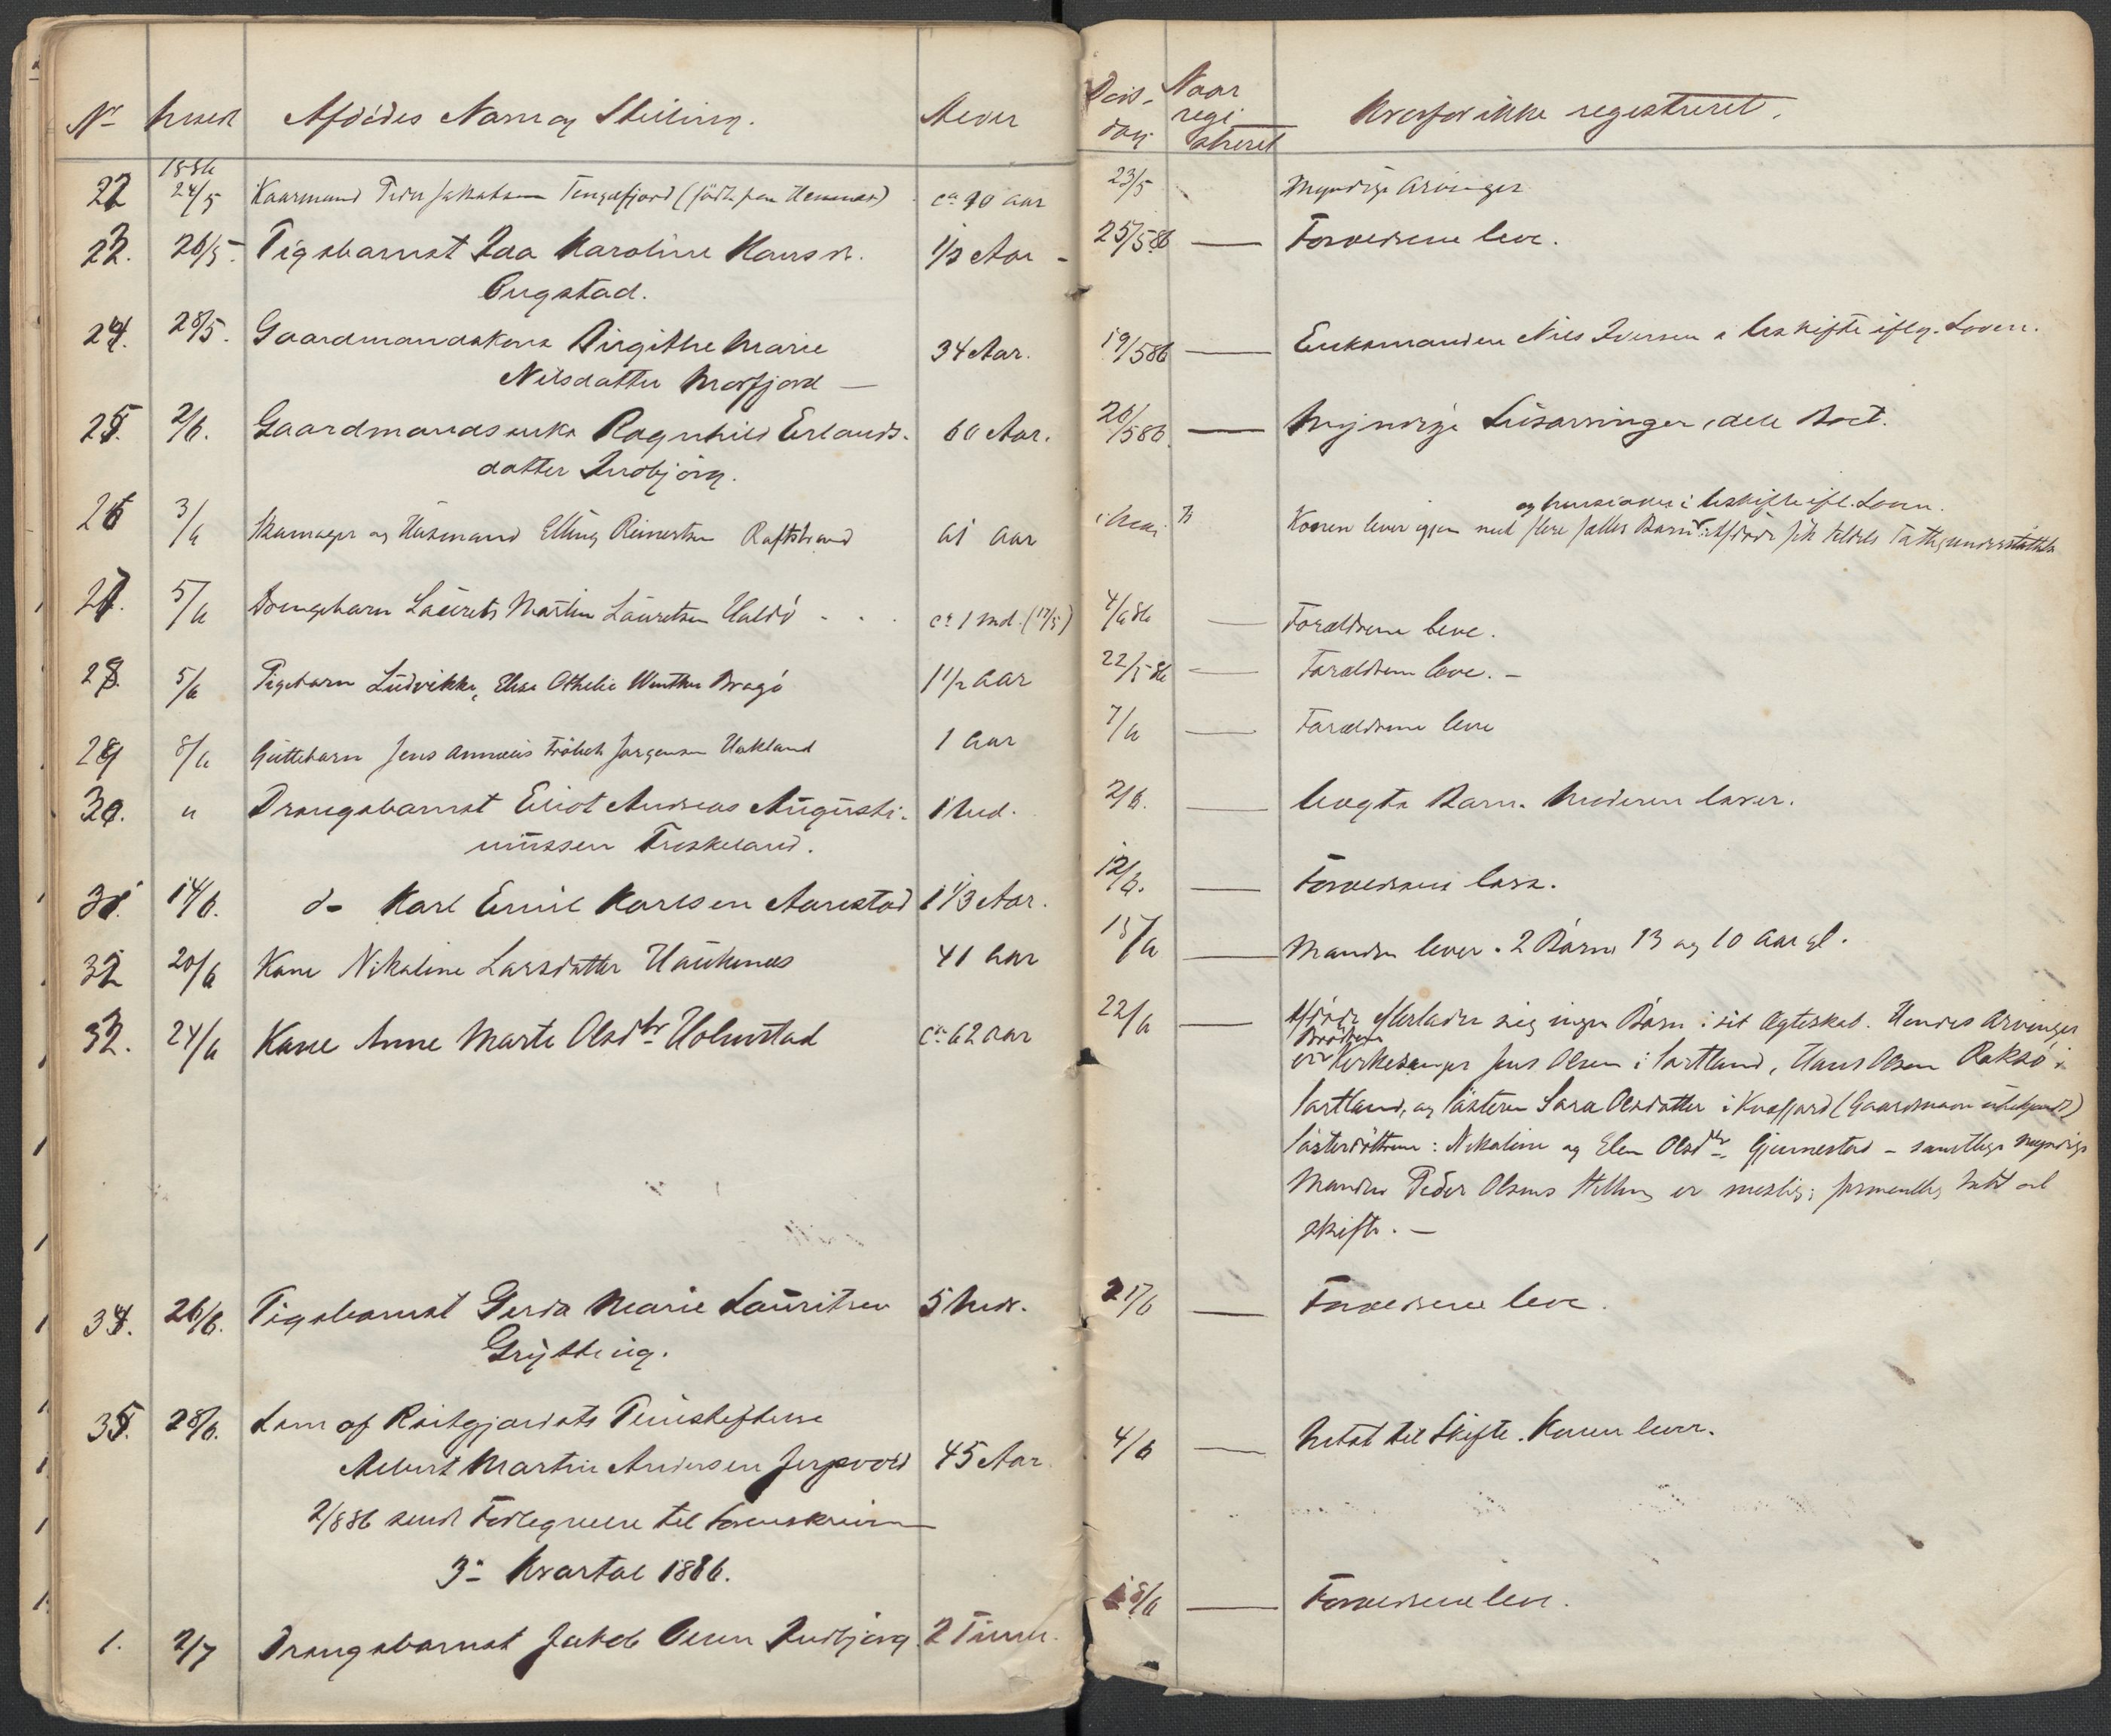 No Anm. Afdødes Navn og Stilling. Alder Døds- Naar Hvorfor ikke registreret.
dag regi
streret
1886
22 24/5 Kaarmand Peder Jakobsen Tengelfjord (født paa Hemnes) ca 90 aar 23/5 Myndige Arvinger
23. 26/5. Pigebarnet Ida Karoline Hansd. 1/2 Aar - 25/5 86 — Forældrene leve.
Bugstad.
24. 28/5. Gaardmandskone Birgithe Marie 34 Aar. 19/5 86 — Enkemanden Nils Iversen i uskifte iflg. Loven.
Nilsdatter Morfjord —
25. 2/6. Gaardmandsenke Ragnhild Erlands- 60 Aar. 26/5 86. — Myndige Livsarvinger, dele Boet.
datter Indbjörg.
og hensidder i uskifte ifl. Loven.
26 3/6 og Husmand Elling Reinertsen Raftstrand 61 Aar Konen lever igjen med flere fælles Børn. Afdøde fik tildels Fattigunderstøttelse
27. 5/6 Drengebarn Laurets Martin Lauretsen Haldö . . . ca 1 Md. (17/5) 4/6 86 — Forældrene leve.
28. 5/6 Pigebarn Ludvikke, Elise Othelie Winther Bragö 1 1/2 aar 22/5 86 — Forældrene leve. -
29 8/6 Guttebarn Jens Annæus Frölich Jørgensen Hakland 1 aar 7/6 — Forældrene leve
30. " Drengebarnet Eliot Andreas Augusti- 1 Md. 2/6. — Uægte Barn. Moderen lever.
nussen Freskeland.
31. 14/6. do Karl Emil Karlsen Aarestad 1 1/3 Aar. 12/6. — Forældrene leve.
32 20/6 Kone Nikoline Larsdatter Haukenes 41 aar 15/6 — Manden lever. 2 Børn 13 og 10 Aar gl.
33. 24/6 Kone Anne Marte Olsdtr Holmstad ca 62 aar 22/6 — Afdøde efterlader sig ingen Børn i sit Ægteskab. Hendes Arvinger
Brødrene
er Kirkesanger Jens Olsen i Sortland, Hans Olsen Roksö i
Sortland, og Søsteren Sara Olsdatter i Kvæfjord (Gaardsnavn ubekjendt)
Søsterdöttrene: Nikoline og Elen Olsdtr Gjermestad - samtlige myndige
Manden Peder Olsens Stilling er meslig; formentlig Intet at
skifte. —
34. 26/6. Pigebarnet Gerda Marie Lauritsen 5 Mdr. 21/6 — Forældrene leve.
Grytting.
35. 28/6. Lem af Roitgjerdets Pleiestiftelse
Albert Martin Andersen Jerpvold 45 Aar 4/6 — Intet til Skifte. Konen lever.
2/8 86 sendt Fortegnelse til Sorenskriveren
3die Kvartal 1886.
1. 2/7 Drengebarnet Jakob Olsen Indbjörg. 2 Timer. 18/6 — Forældrene leve.